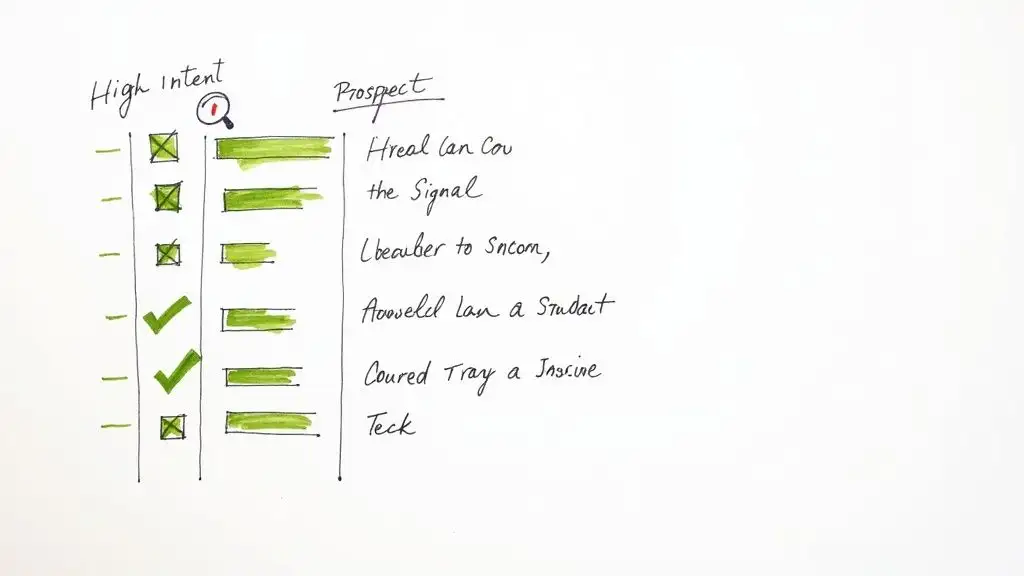 High Intent
Prospect
Hreal Can Cou
the Signal
Lbeauber to Sncom,
Aouveld Lan a Studact
Coured Tray a
Teck